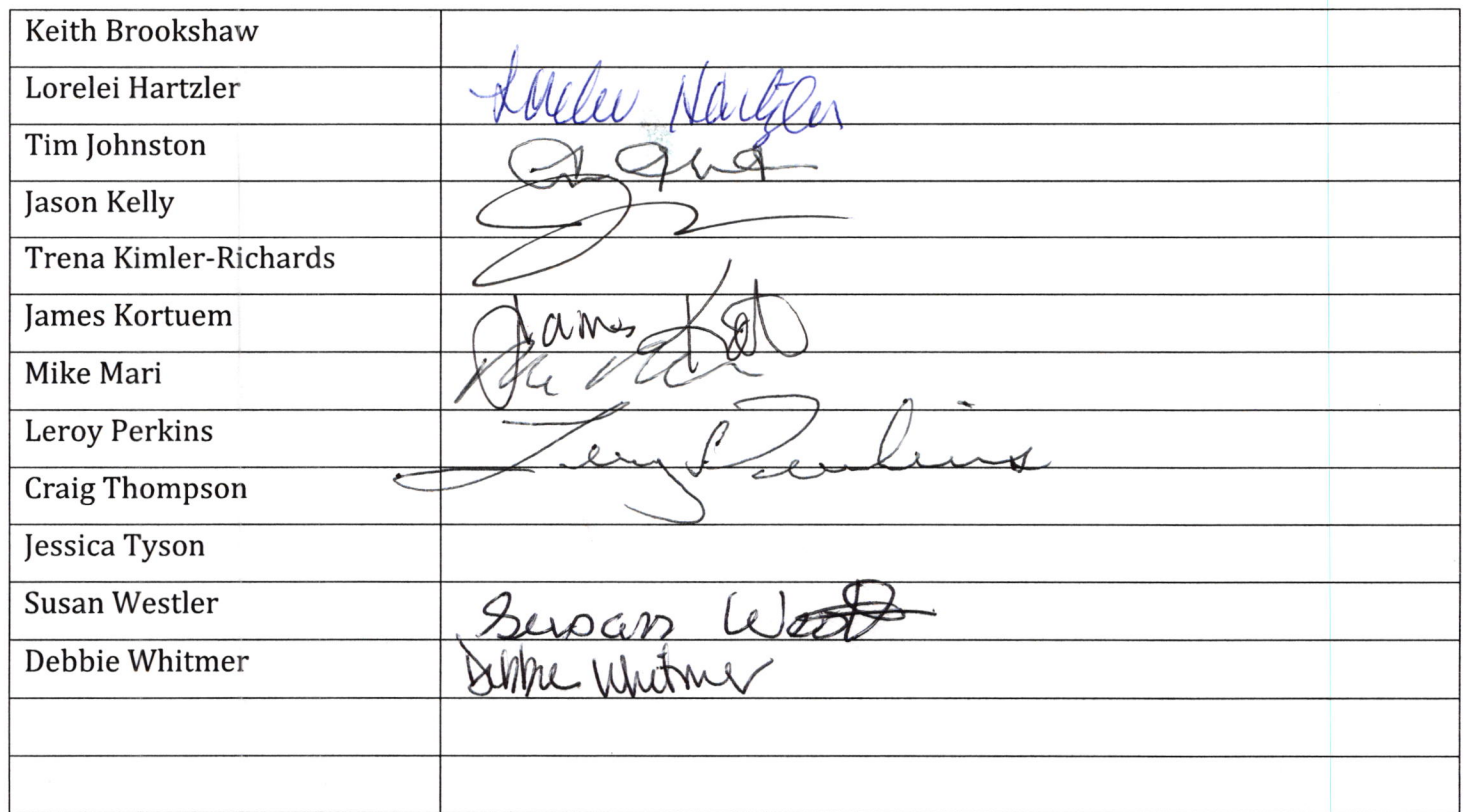 Keith Brookshaw
Lorelei Hartzler Lorelei Hartzler
Tim Johnston
Jason Kelly
Trena Kimler-Richards
James Kortuem James
Mike Mari
Leroy Perkins Leroy Perkins
Craig Thompson
Jessica Tyson
Susan Westler Susan
Debbie Whitmer Debbie Whitmer